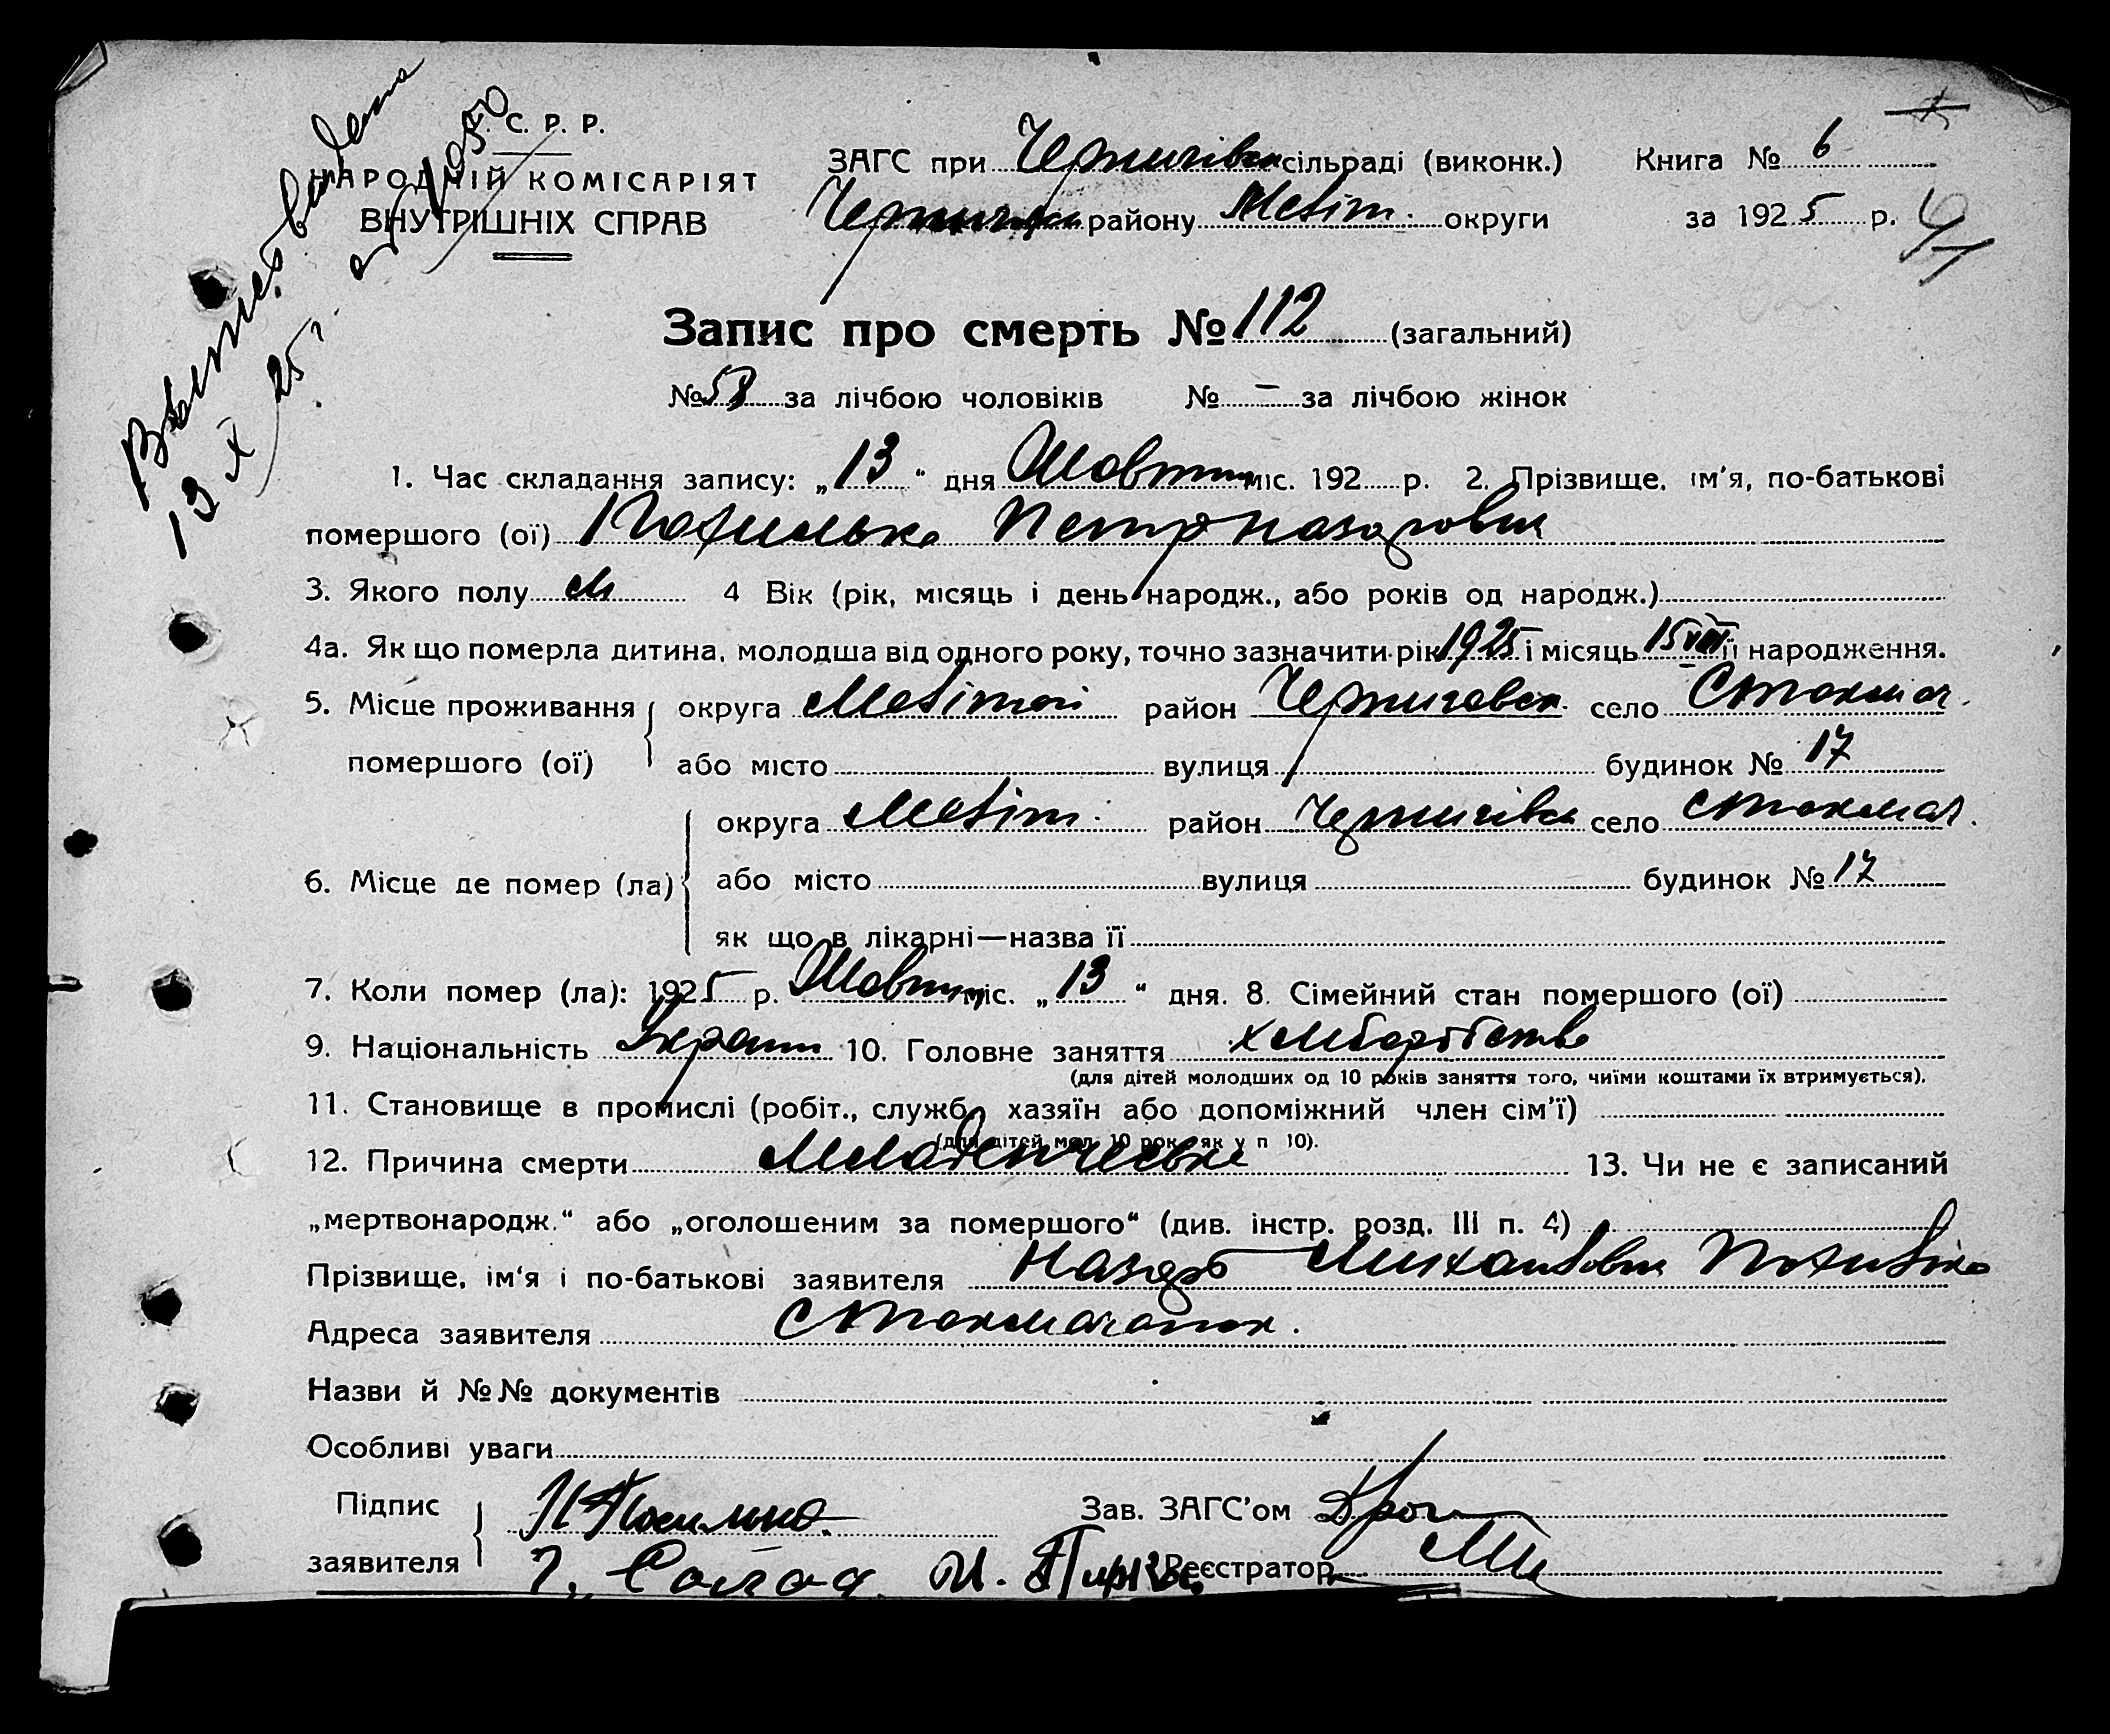 С. Р. Р.
НАРОДНІЙ КОМІСАРІЯТ
ВНУТРІШНІХ СПРАВ
ЗАГС при Чернигівск сільраді (виконк.) Книга № 6
району Меліт. округи за 1925 р.
41
Выпись выдана
13 X 25 г.
Запис про смерть № 112 (загальний)
№ 58 за лічбою чоловіків № — за лічбою жінок
1. Час складання запису: „13“ дня Жовтня міс. 192 р. 2. Прізвище, ім'я, по-батькові
помершого (ої) Похилько Петр Назарович
3. Якого полу м 4 Вік (рік, місяць і день народж., або років од народж.)
4а. Як що померла дитина, молодша від одного року, точно зазначити рік 1925 і місяць 15 VIII її народження.
5. Місце проживання округа Мелітоп район Черниговск. село Стокмач.
помершого (ої) або місто вулиця будинок № 17
округа Меліт. район Чернигівск село Стокмач.
6. Місце де помер (ла) або місто вулиця будинок № 17
як що в лікарні—назва її
7. Коли помер (ла): 1925 р. Жовтня міс. „13“ дня. 8. Сімейний стан помершого (ої)
9. Національність Украин 10. Головне заняття хліборобство
(для дітей молодших од 10 років заняття того, чиїми коштами їх втримується).
11. Становище в промислі (робіт., службо, хазяїн або допоміжний член сім'ї)
(для дітей мол. 10 рок. як у п 10).
12. Причина смерти Младенческая 13. Чи не є записаний
„мертвонародж.“ або „оголошеним за помершого“ (див. інстр. розд. III п. 4)
Прізвище, ім'я і по-батькові заявителя Назар Михайлович Похилько
Адреса заявителя
Назви й №№ документів
Особливі уваги
Підпис Н Похилько. Зав. ЗАГС'ом
заявителя Реєстратор